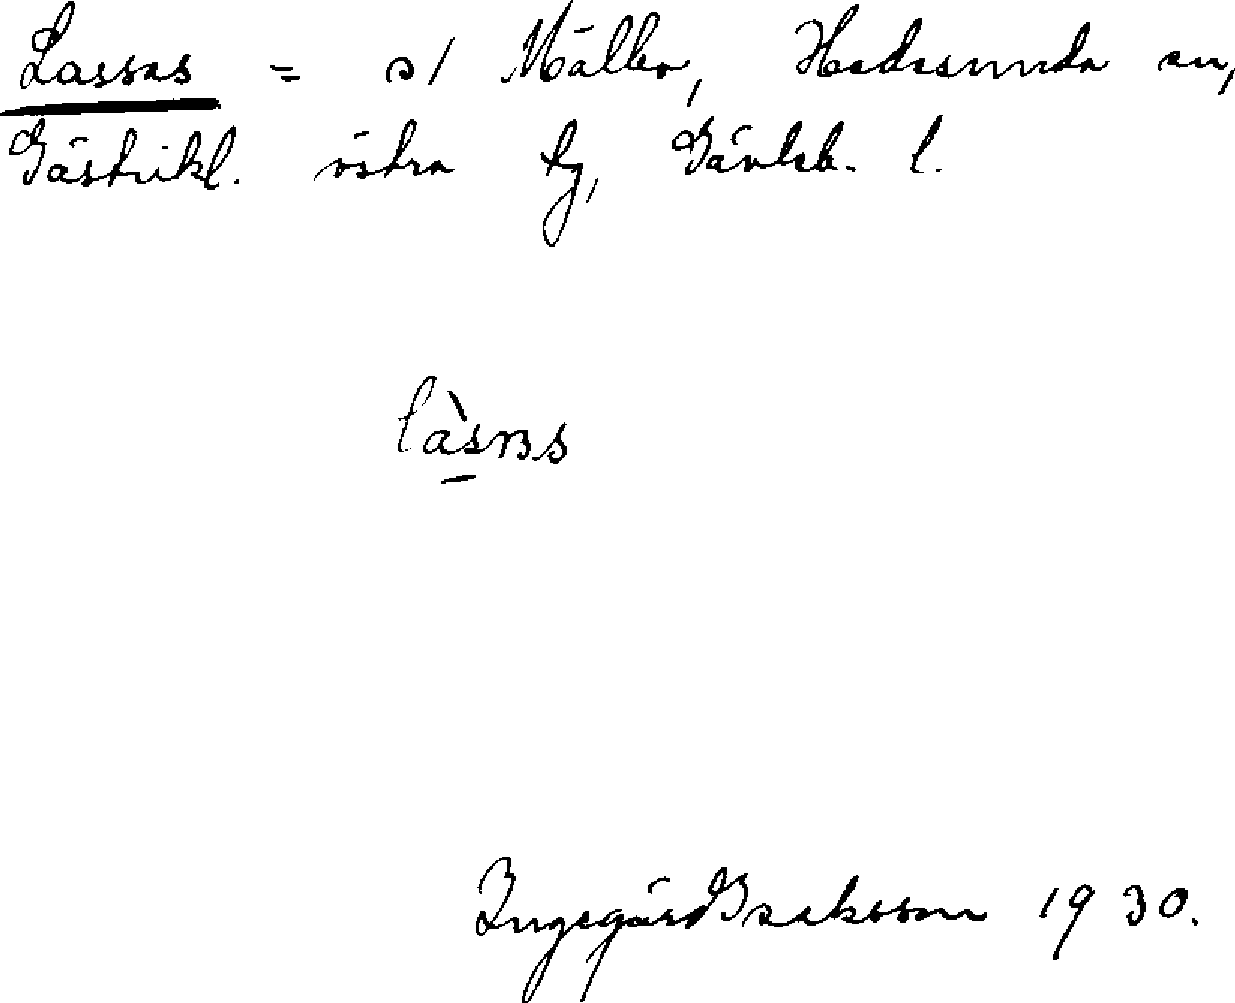 Lassas = s/ Mälbo, Hedesunda sn,
Gästrikl. östra tg, Gävleb. l.
Ingegärd Isaksson 1930.